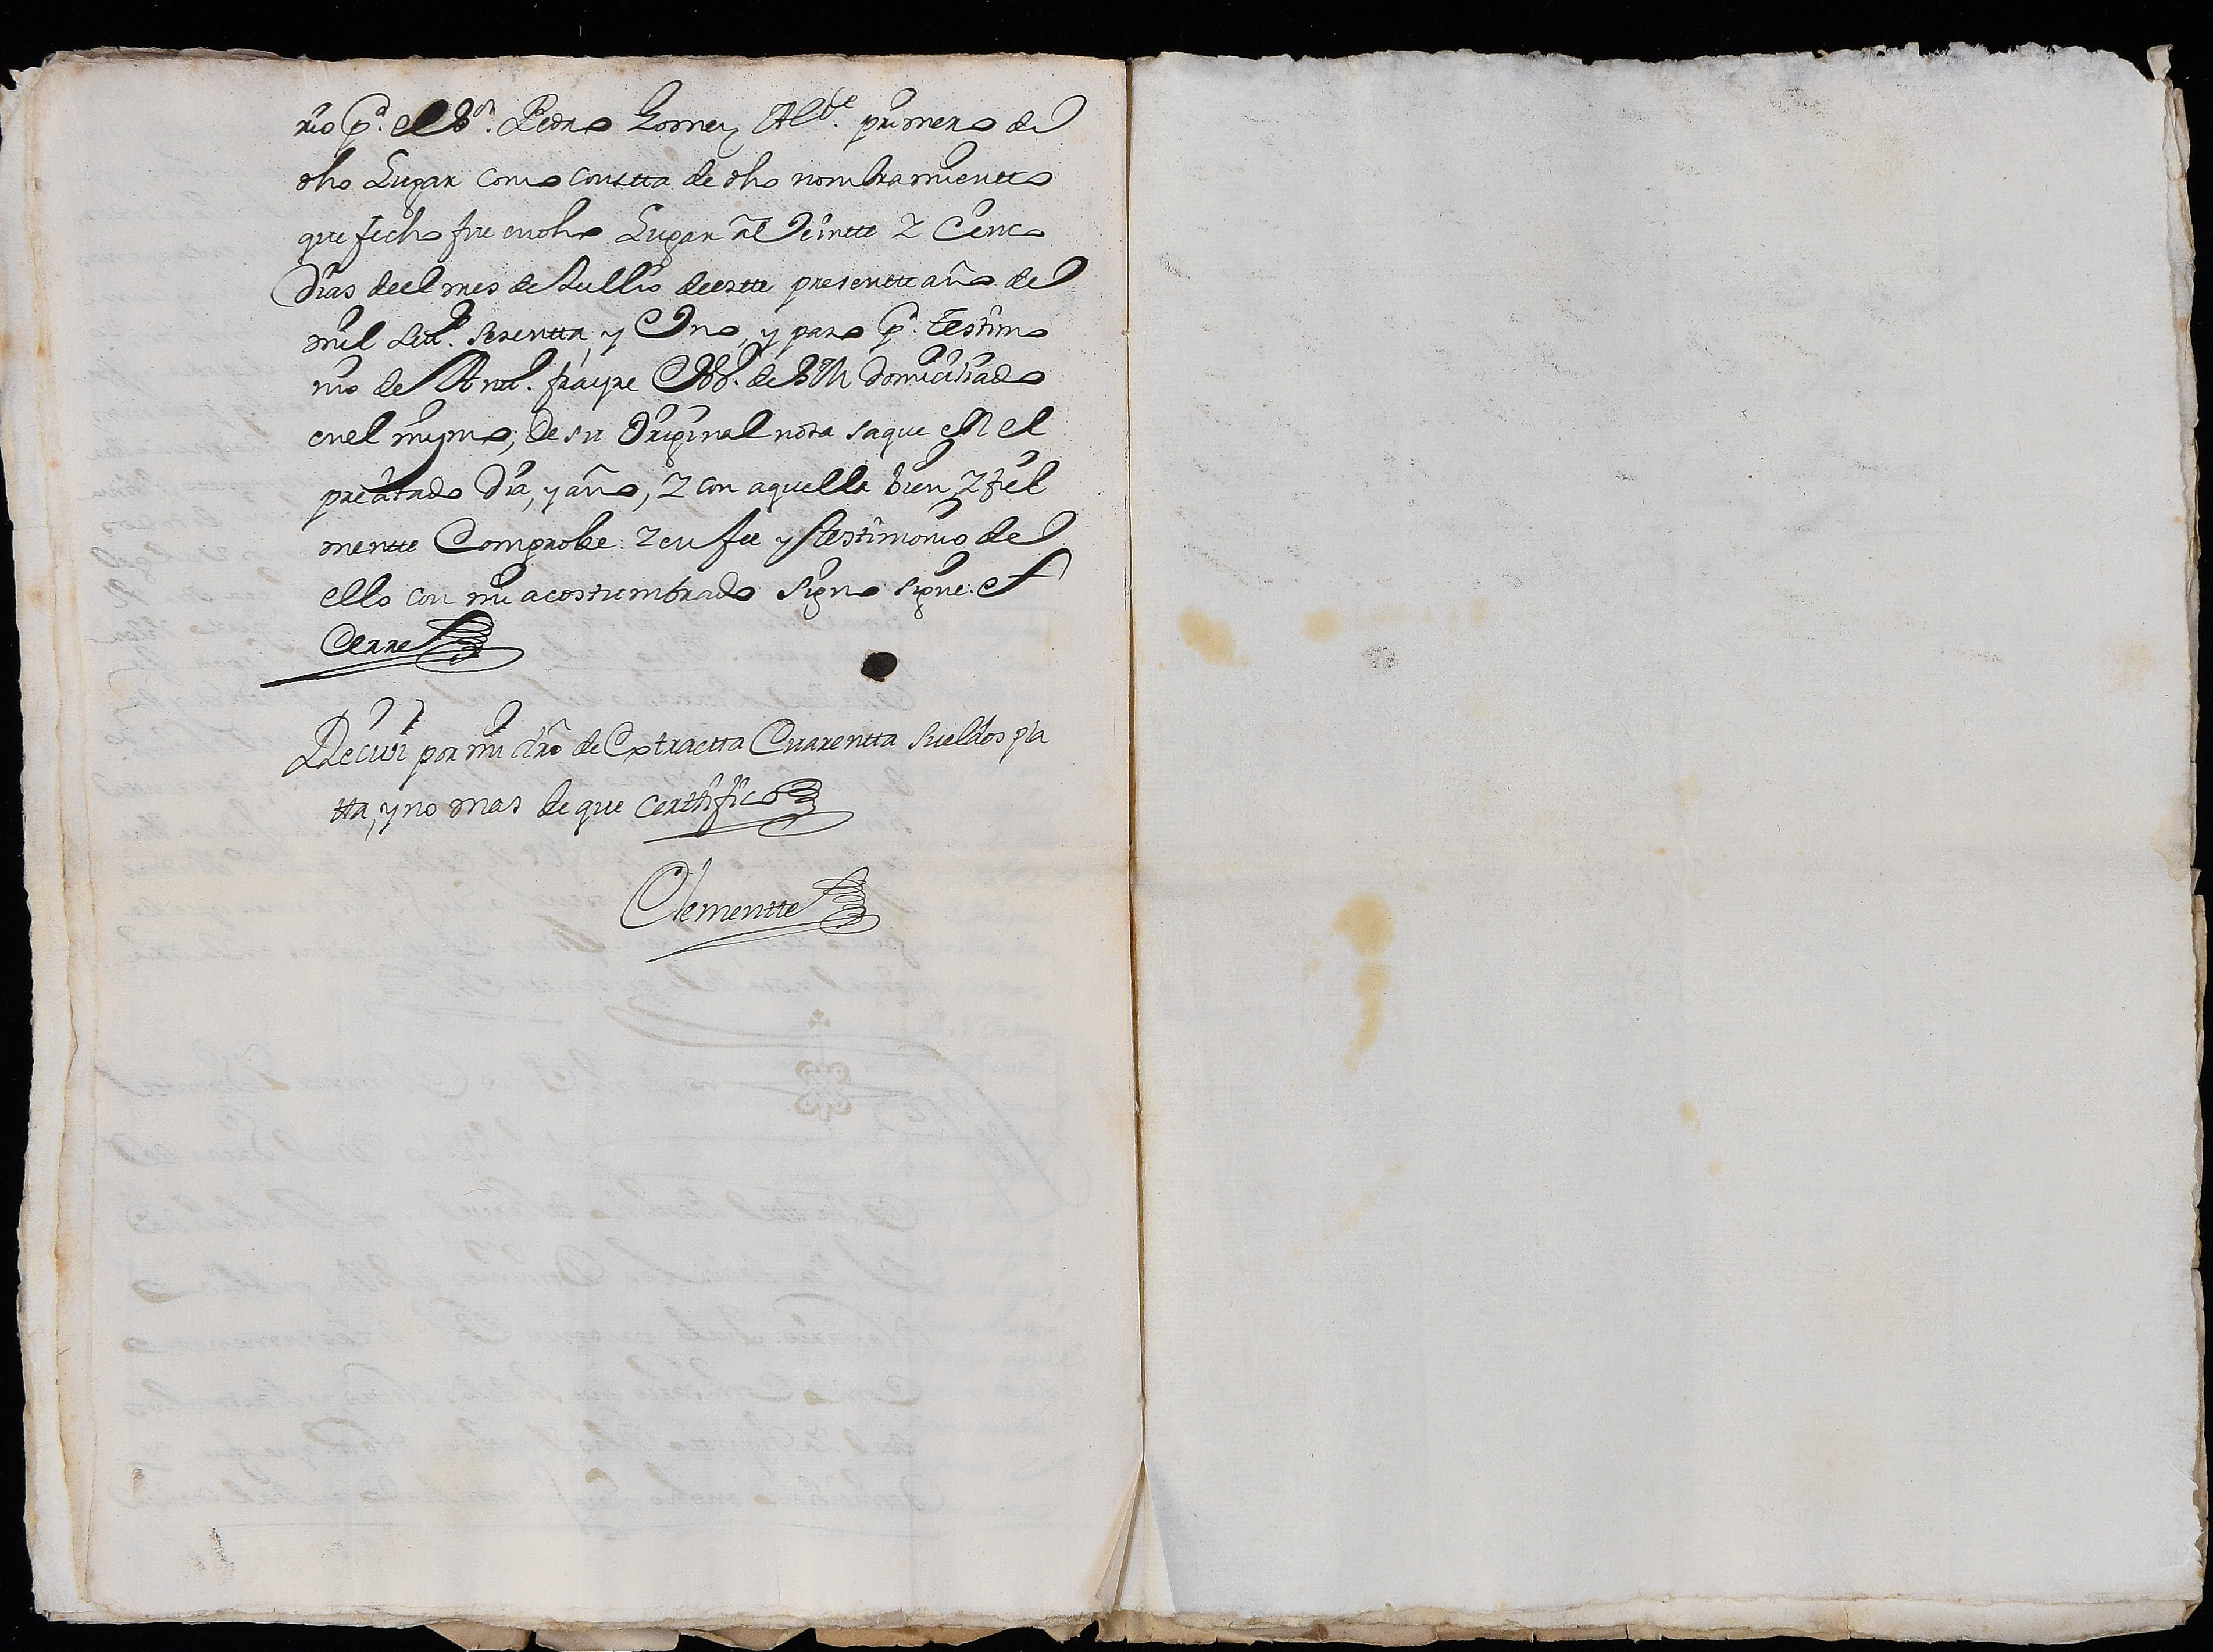 rio pr. el Sr. Pedro Gomez Alde. primero del
dho Lugar como constta de dho nombramientto
que fecho fue en dho Lugar al Veintte 2 Cinco
Dias deel mes de Jullio deestte presentte año del
mil Sett. Setentta, y Uno, y paso pr. testimo
nio de Antt. frayre Ess. de S M Domiciliado
en el mismo; de su Original nota saque en el
precitado Dia, y año, 2 con aquella bien, 2 fiel
mentte Comprobe: 2 en fee y testimonio del
ello con mi acostumbrado Signo Signe. et
Cerre
Recivi por mi dro de Extractta Cuarentta Sueldos pla
tta, y no mas de que Certtifico
Clementte